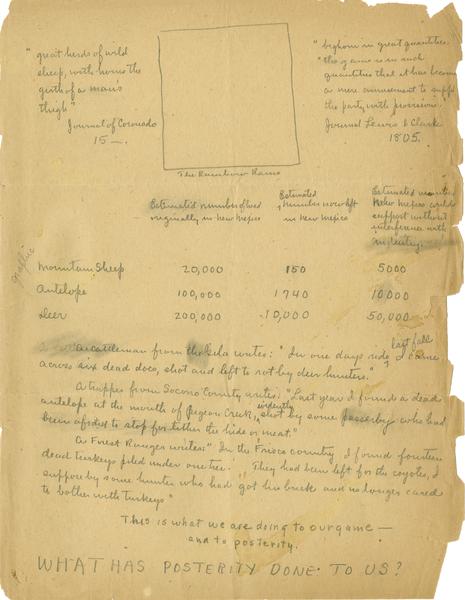 "great herds of wild
sheep, with horns the
girth of a man's
thigh"
Journal of Coronado
15—.
"bighorn in great quantities.
"the game is in such
quantities that it has become
a mere amusement to supply
the party with provisions.
Journal Lewis & Clark
1805.
The Rainbow Rams
Estimated number of head
originally in New Mexico
Estimated
number now left
in New Mexico
Estimated number
New Mexico could
support without
interference with
industry.
graphic
Mountain Sheep 20,000 150 5000
Antelope 100,000 1740 10000
Deer 200,000 10,000 50,000
A cattleman from the Gila writes: "In one days ride last fall I came
across six dead does, shot and left to rot by deer hunters."
A trapper from Socorro County writes: "Last year I found a dead
antelope at the mouth of Pigeon Creek, evidently shot by some passerby who had
been afraid to stop for either the hide or meat."
A Forest Ranger writes "In the Frisco country I found fourteen
dead turkeys piled under one tree. They had been left for the coyotes, I
suppose by some hunter who had got his buck and no longer cared
to bother with turkeys"
This is what we are doing to our game —
and to posterity.
WHAT HAS POSTERITY DONE TO US?